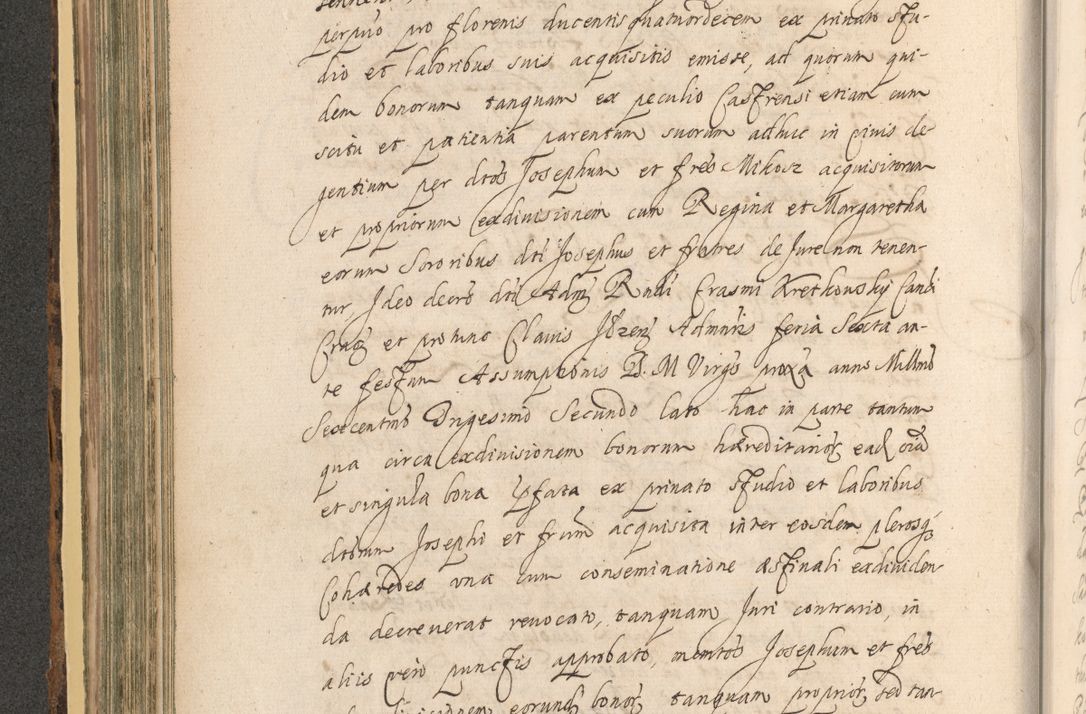 perpuo pro florenis ducentis quatuordecem ex priuato stu-
dio et laboribus suis acquisitis emisse, ad quorum qui-
dem bonorum tanquam ex peculio Castrensi etiam cum
scitu et patientia parentum suorum adhuc in viuis de-
gentium per dtos Josephum et frēs Mikosz acquisitorum
et propriorum exdiuisionem cum Regina et Margaretha
eorum Sororibus dti Josephus et fratres de Jure non tenen-
tur Ideo decreto dti Admⁱ Rndi Erasmi Kretkousky Candi
Crac et pro tunc Clauis Ilzen Admnris feria Sexta an-
te festum Assumptionis B. M Virgs proxa anno Millmo
Sexcentmo Vigesimo Secundo lato hac in parte tantum
qua circa exdiuisionem bonorum hæreditarior ead oia
et singula bona pfata ex priuato studio et laboribus
dtorum Josephi et frum acquisita inter eosdem plerosq
Cohæredes vna cum conseminatione æstiuali exdiuiden-
da decreuerat reuocato, tanquam Juri contrario, in
aliis vero punctis approbato, mentos Josephum et frēs
eorund bonor tanquam proprior sed tan-